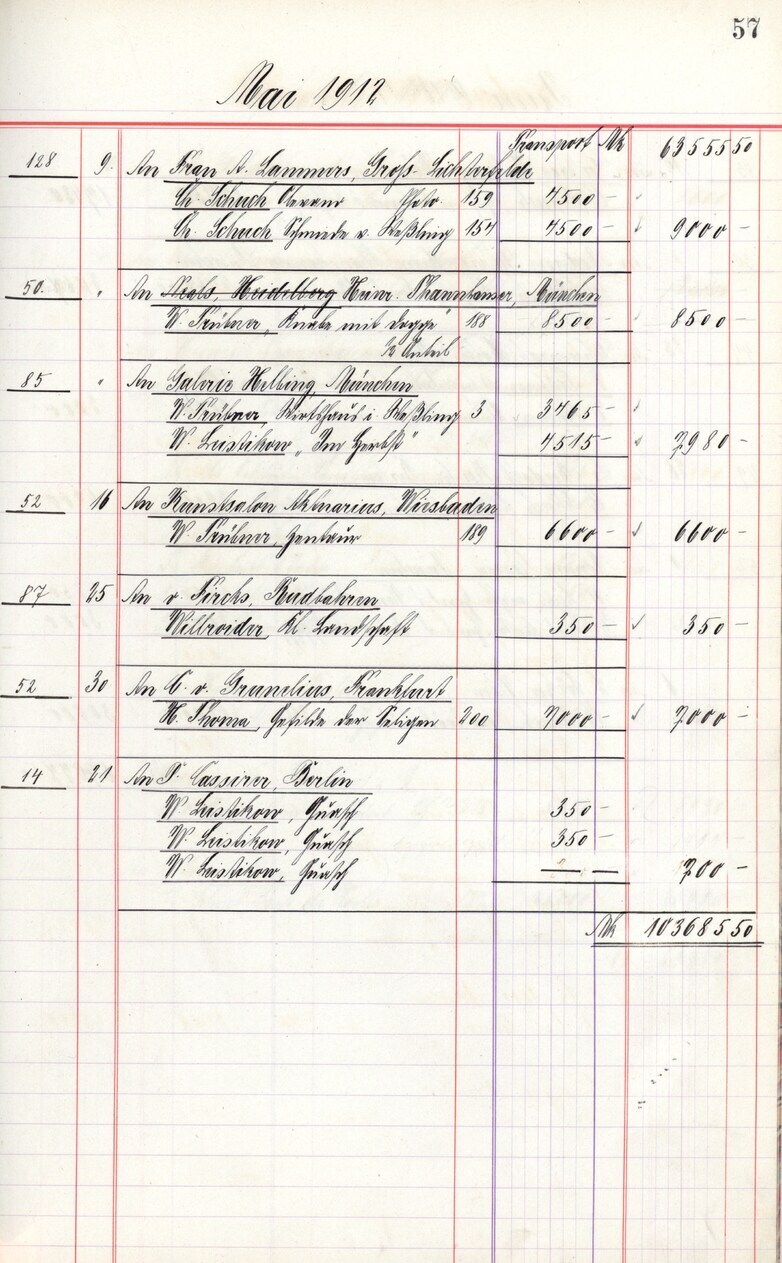 57
Mai 1912
Transport Mk 63555 50
128 9. An Frau A. Lammers, Groß-Lichterfelde
Ch. Schuch Olevano Photo 159 4500 –
Ch. Schuch Schmiede v. Weßling 154 4500 – 9000 –
50. " An Neals, Heidelberg Heinr. Thannhauser, München
W. Trübner „Knabe mit Dogge" 188 8500 – 8500 –
1/2 Anteil
85 " An Galerie Helbing, München
W. Trübner, Wirtshaus i. Weßling 3 3465 –
W. Leistikow „Im Herbst" 4515 – 7980 –
52 16 An Kunstsalon Aktuarius, Wiesbaden
W. Trübner, Zentaur 189 6600 – 6600 –
87 25 An v. Fircks,
Willroider, Kl. Landschaft 350 – 350 –
52 30 An C. v. Grunelius, Frankfurt
H. Thoma, Gefilde der Seligen 200 7000 – 7000 –
14 21 An P. Cassirer, Berlin
W. Leistikow, Guasch 350 –
W. Leistikow, Guasch 350 –
W. Leistikow, Guasch — — 700 –
Mk 103685 50